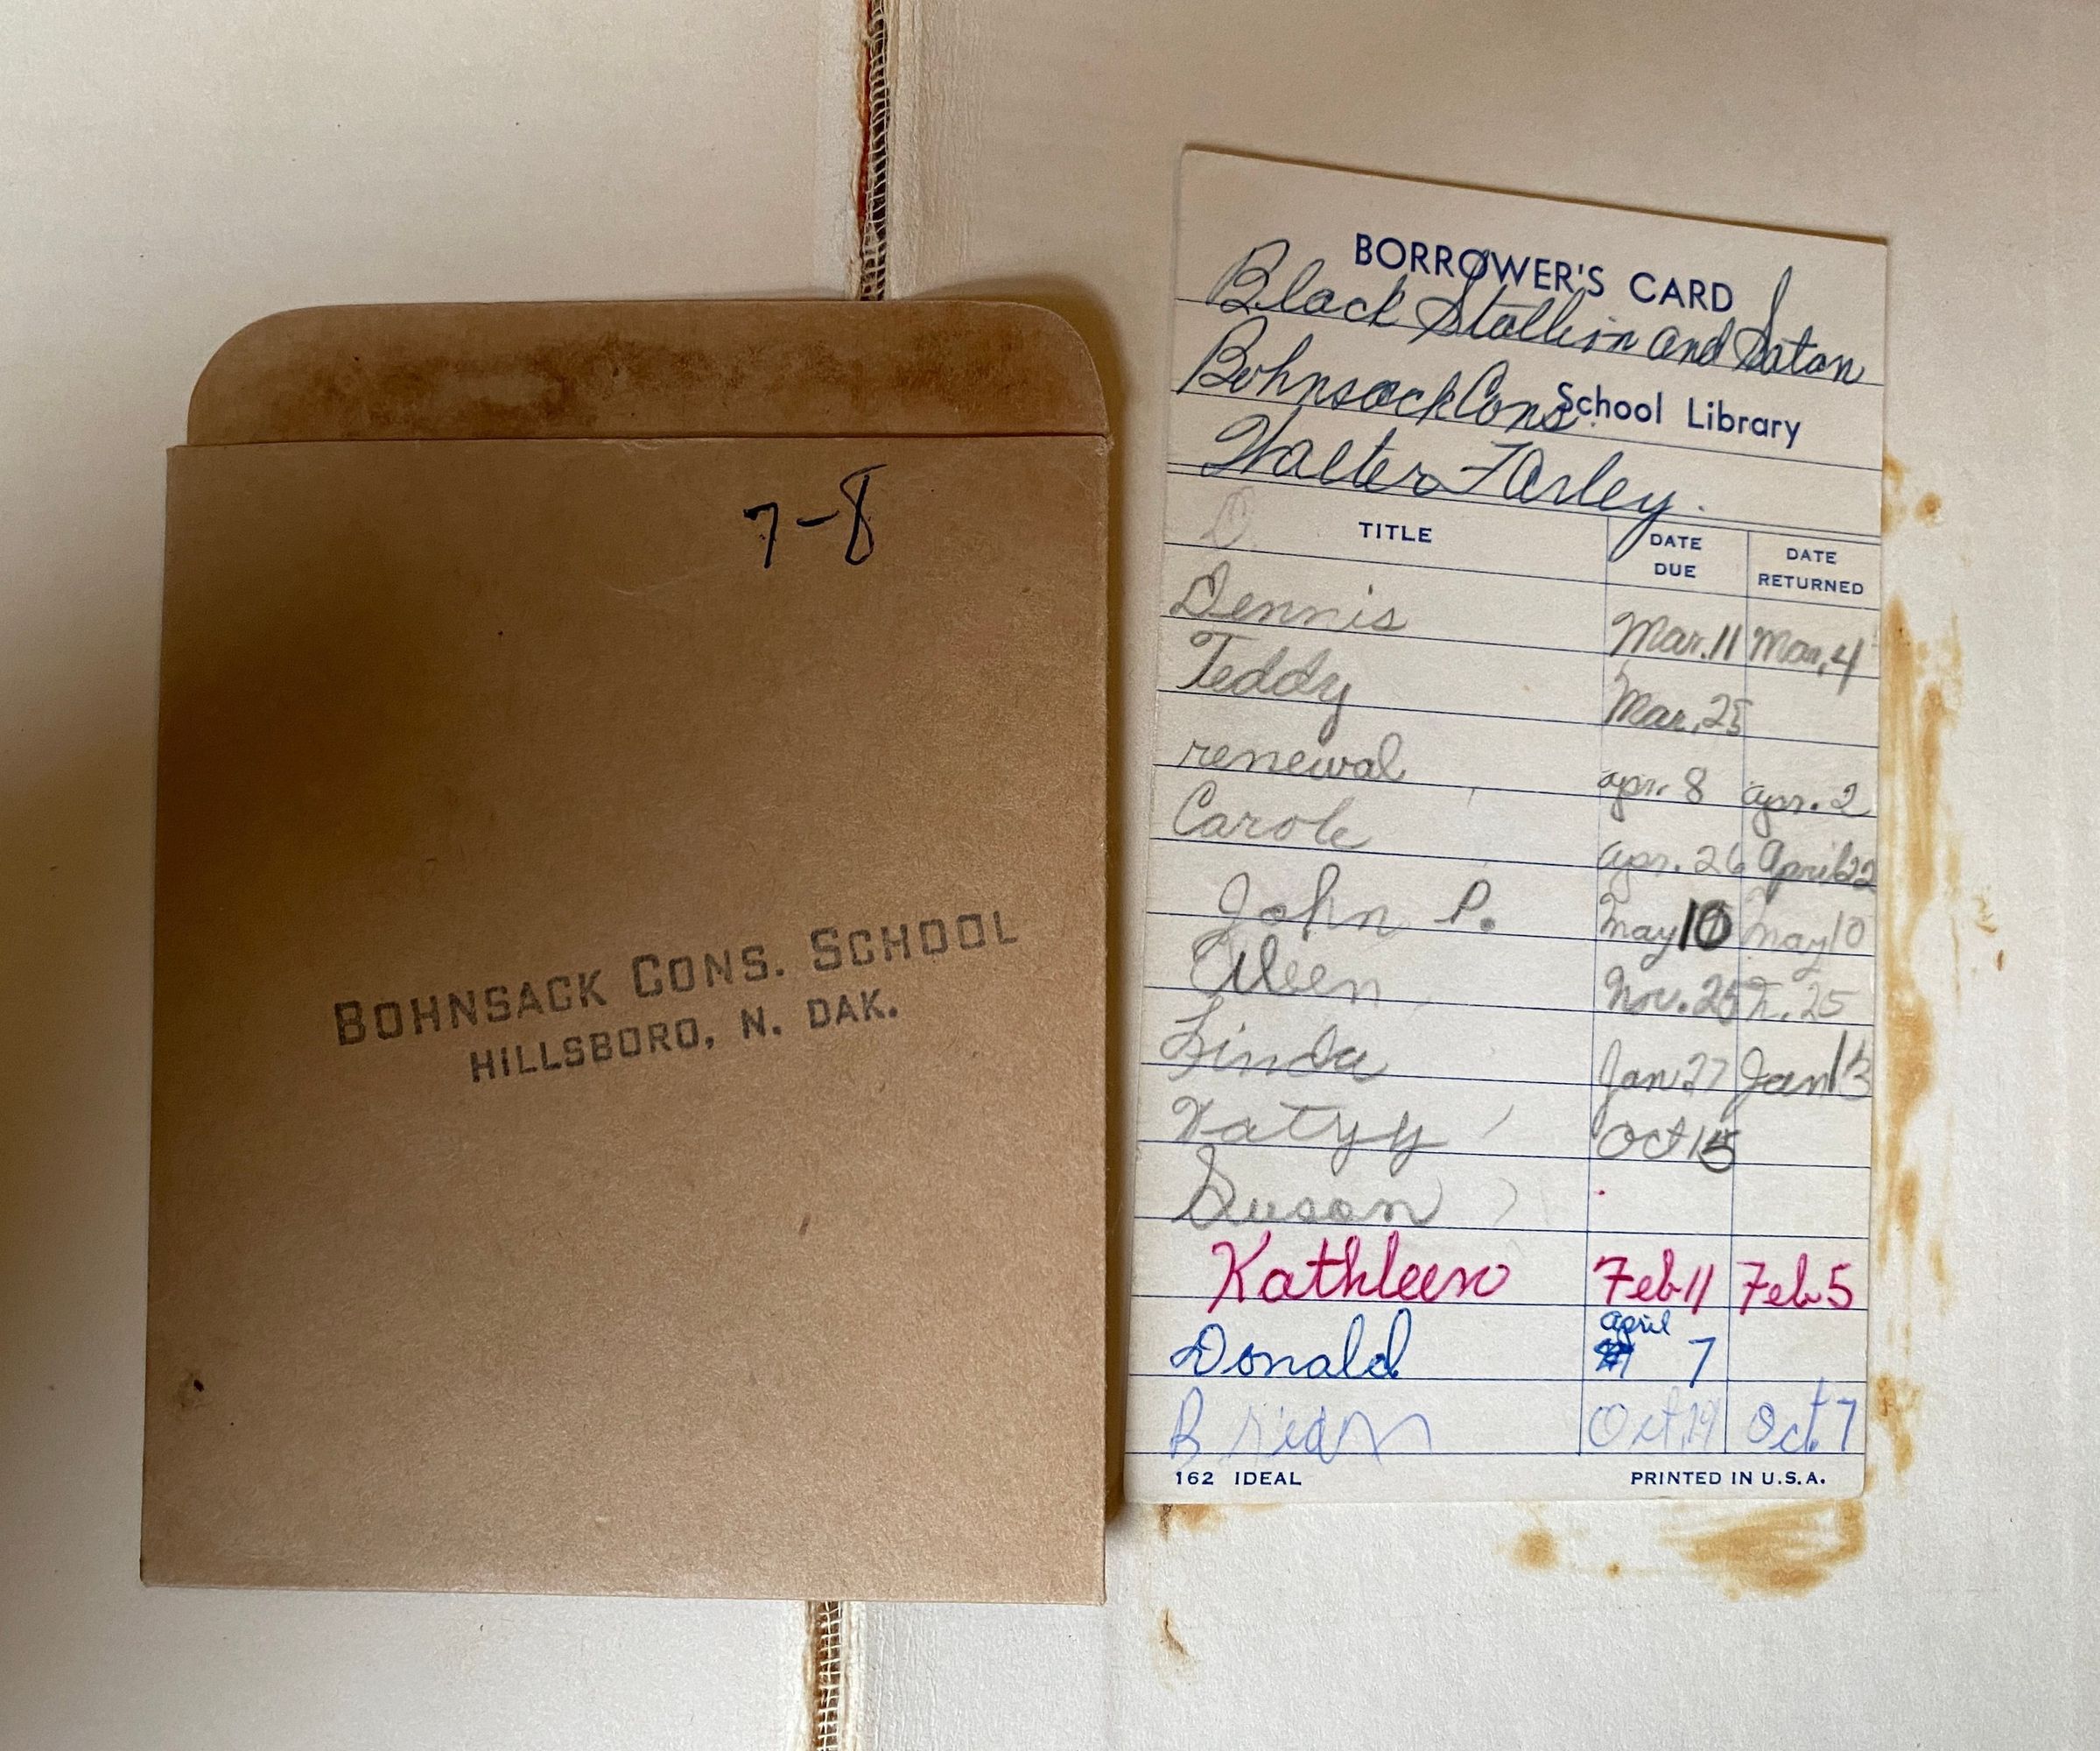 7-8
BOHNSACK CONS. SCHOOL
HILLSBORO, N. DAK.
BORROWER'S CARD
Black Stallion and Satan
Bohnsack Cons. School Library
Walter Farley.
D.
TITLE DATE DUE DATE RETURNED
Dennis Mar. 11 Mar. 4
Teddy Mar. 25
renewal apr. 8 apr. 2
Carole apr. 26 April 22
John P. May 10 May 10
Nov. 25 25
Linda Jan 27 Jan 13
Oct 15
Susan
Kathleen Feb 11 Feb 5
Donald april 7
Brian Oct. 14 Oct. 7
162 IDEAL PRINTED IN U.S.A.